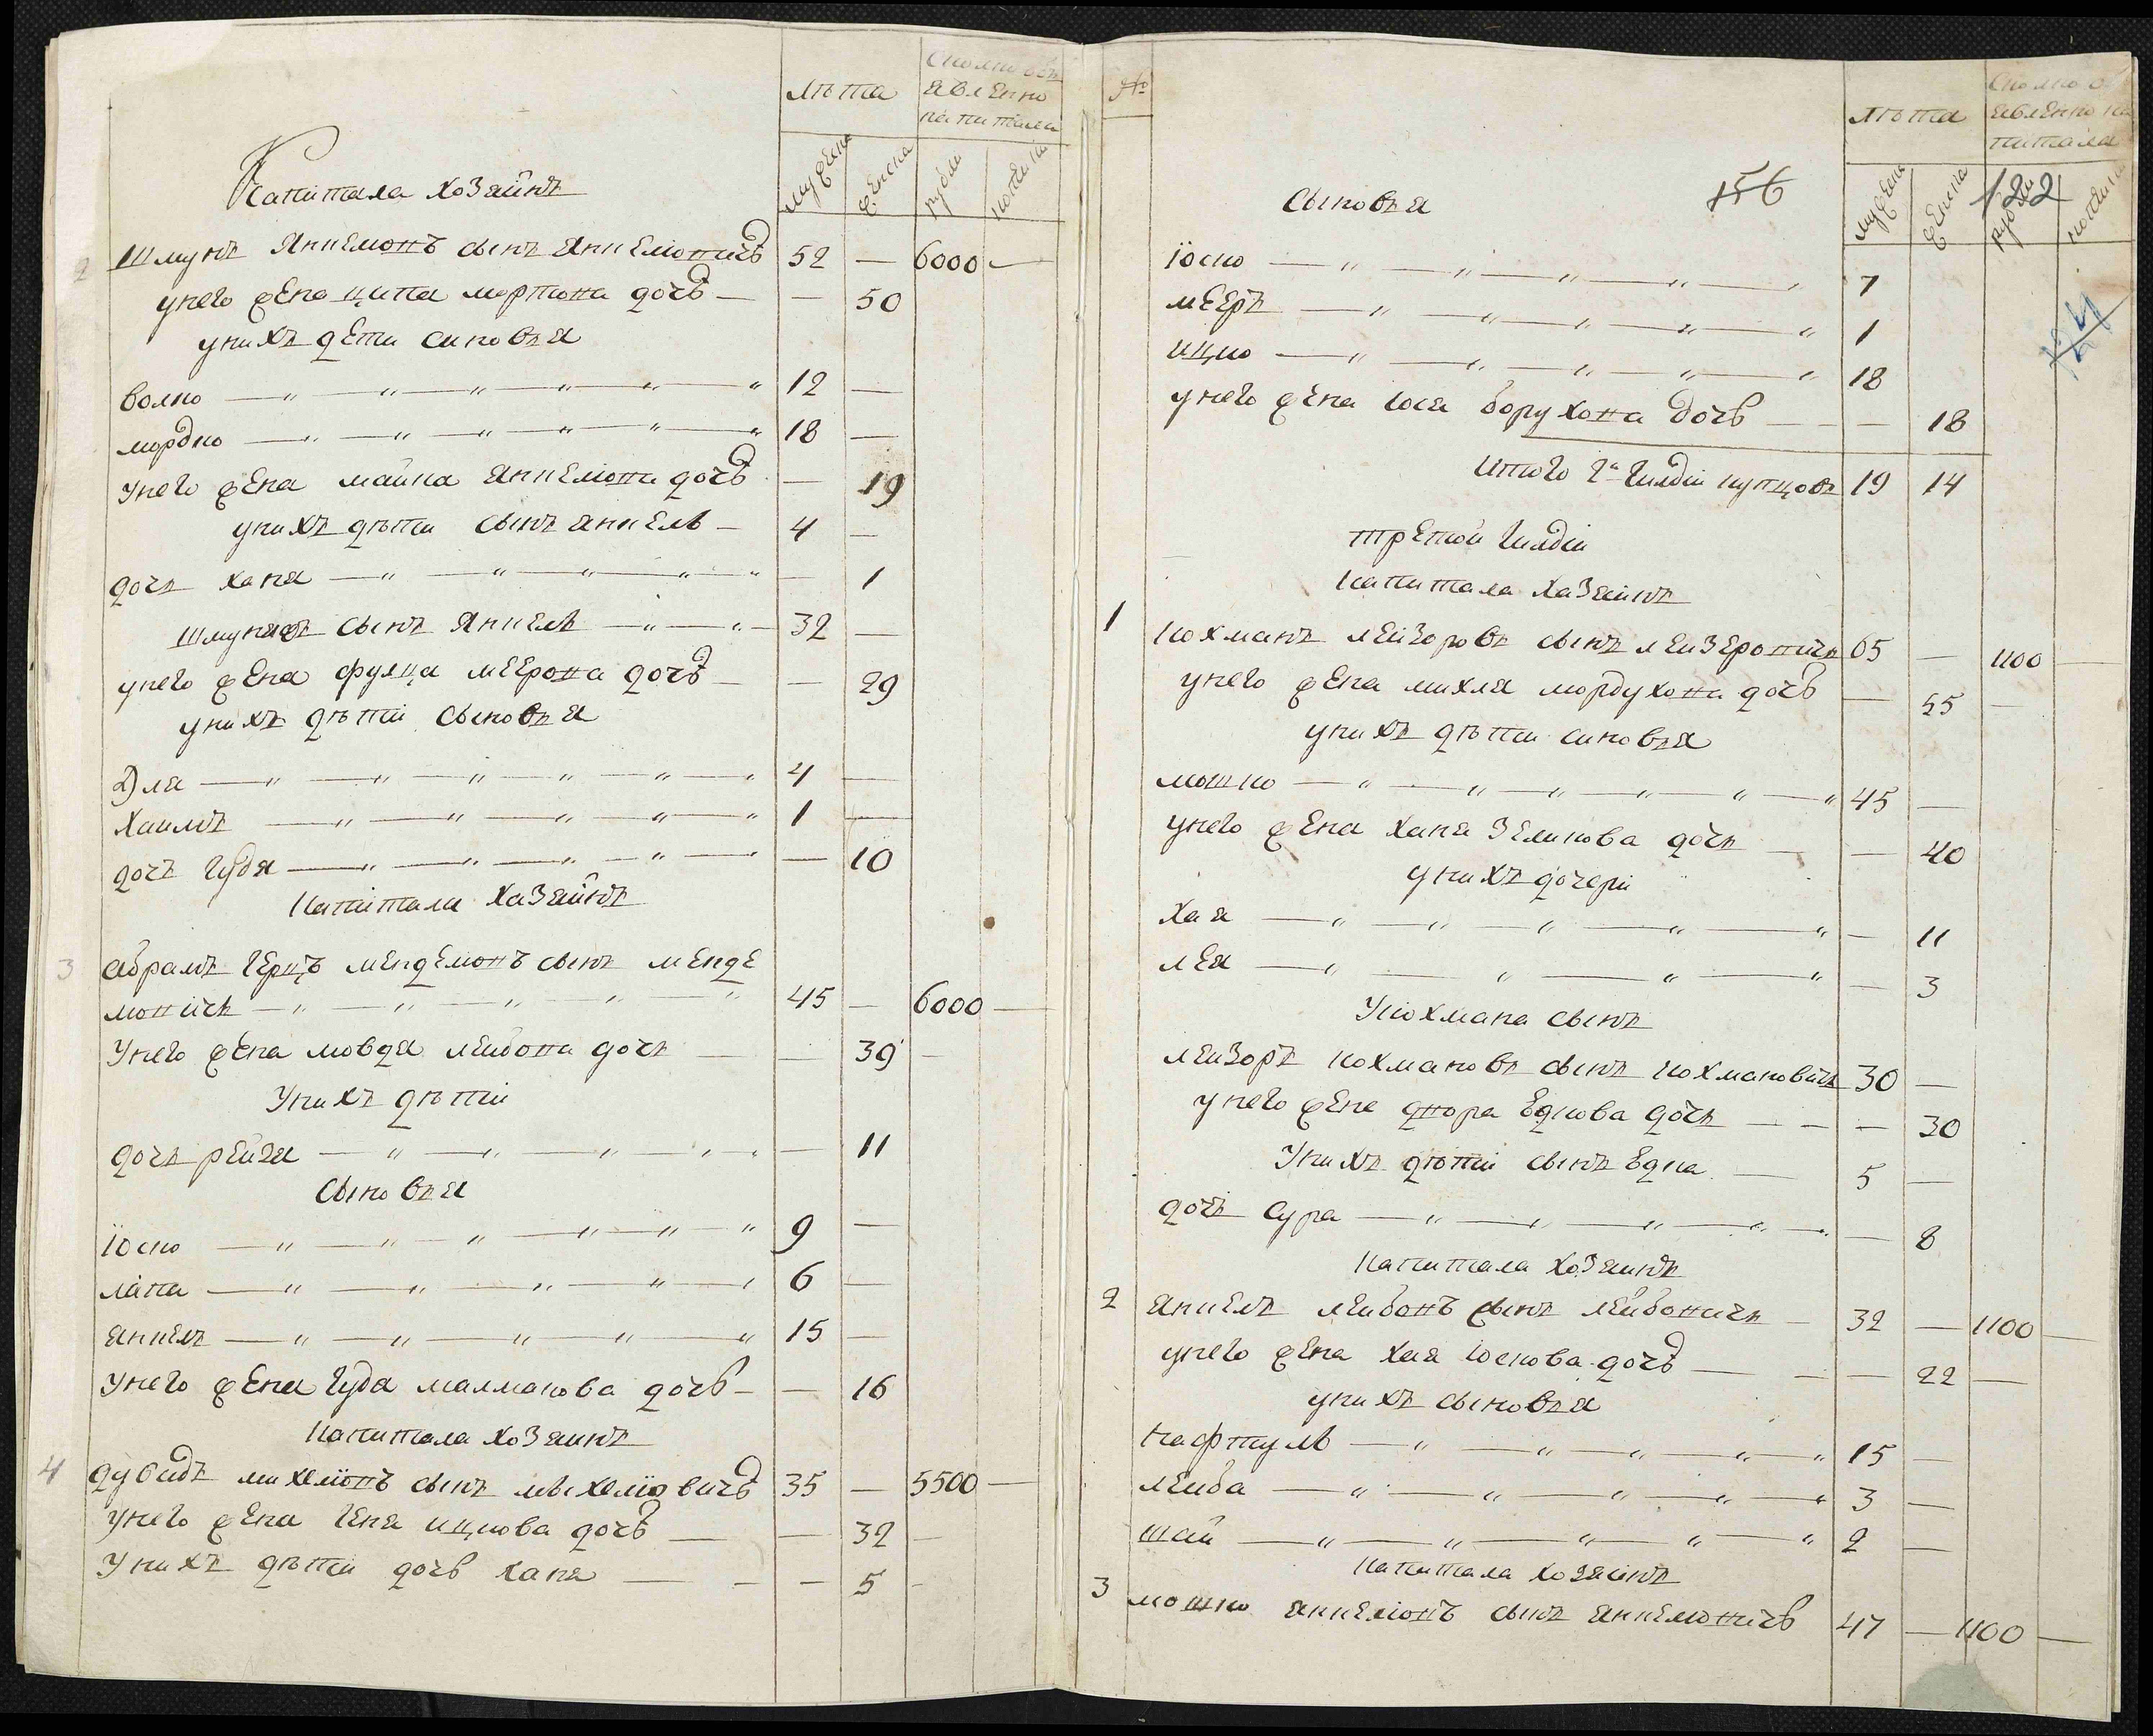 лѣта
Сколко обѣ
явленно
капитала
мужеска
женска
рубли
копеики
Капитала хозяинъ
2 Шмунъ Янкелювъ сынъ Янкелювичъ 52 — 6000 —
унего жена ципа мортова дочь — — 50
унихъ дети синовья
волко — „ — „ — „ — „ — „ — „ 12 —
мордко — „ — „ — „ — „ — „ — „ 18 —
Унего жена маика Янкелюва дочь — 19
унихъ дѣти сынъ янкель — 4 —
дочъ ханя — „ — „ — „ — „ — „ — 1
сынъ Янкель — „ — „ — 32 —
унего жена фулца меерова дочь — — 29
унихъ дѣти сыновья
Эля — „ — „ — „ — „ — „ — „ 4 —
Хаимъ — „ — „ — „ — „ — „ 1 —
дочъ гудя — „ — „ — „ — „ — „ — 10
Капитали хазяинъ
3 абрамъ герцъ менделювъ сынъ менде
лювичъ — „ — „ — „ — „ — „ 45 — 6000 —
Унего жена мовдя леибова дочъ — — 39 —
Унихъ дѣти
дочъ реиза — „ — „ — „ — „ — „ — 11
сыновья
іоско — „ — „ — „ — „ — „ — „ 9 —
лапа — „ — „ — „ — „ — „ 6 —
янкелъ — „ — „ — „ — „ — „ 15 —
Унего жена гуда малманова дочь — — 16
Капитала хозяинъ
4 дувидъ михелювъ сынъ михелювичъ 35 — 5500 —
Унего жена геня ицкова дочь — — 32 —
Унихъ дѣти дочь ханя — — — 5 -
№
лѣта
Сколко о
явленно ка
питала
мужеска
женска
рубли
копеики
156
122
сыновья
іоско — „ — „ — „ — „ — „ 7
мееръ — „ — „ — „ — „ — „ 1
ицко — „ — „ — „ — „ — „ 18
унего жена юся борухова дочь — — — 18
Итого 2й гилдіи купцовъ 19 14
третой гилдіи
капитала хазяинъ
1 нохманъ леизоровъ сынъ леизеровичъ 65 — 1100 —
унего жена михля мордухова дочь — 55 —
унихъ дѣти синовья
мошко — „ — „ — „ — „ — „ — „ 45 —
унего жена ханя зеликова дочъ — — 40
унихъ дочери
Хая — „ — „ — „ — „ — „ — 11
лея — „ — „ — „ — „ — 3
Унохмана сынъ
леизоръ нохмановъ сынъ нохмановичъ 30 —
унего жена двора едкова дочъ — — — 30
Унихъ дѣти сынъ едка — 5 —
дочъ сура — „ — „ — „ — „ — — 8
капитала хозяинъ
2 янкелъ леибовъ сынъ леибовичъ — 32 — 1100 —
унего жена хая юскова дочь — — — 22 —
унихъ сыновья
нафтуль — „ — „ — „ — „ — „ 15 —
леиба — „ — „ — „ — „ — „ 3 —
шаи — „ — „ — „ — „ — „ 2 —
капитала хозяинъ
3 мошко янкелювъ сынъ янкелювичъ 47 — 1100 —